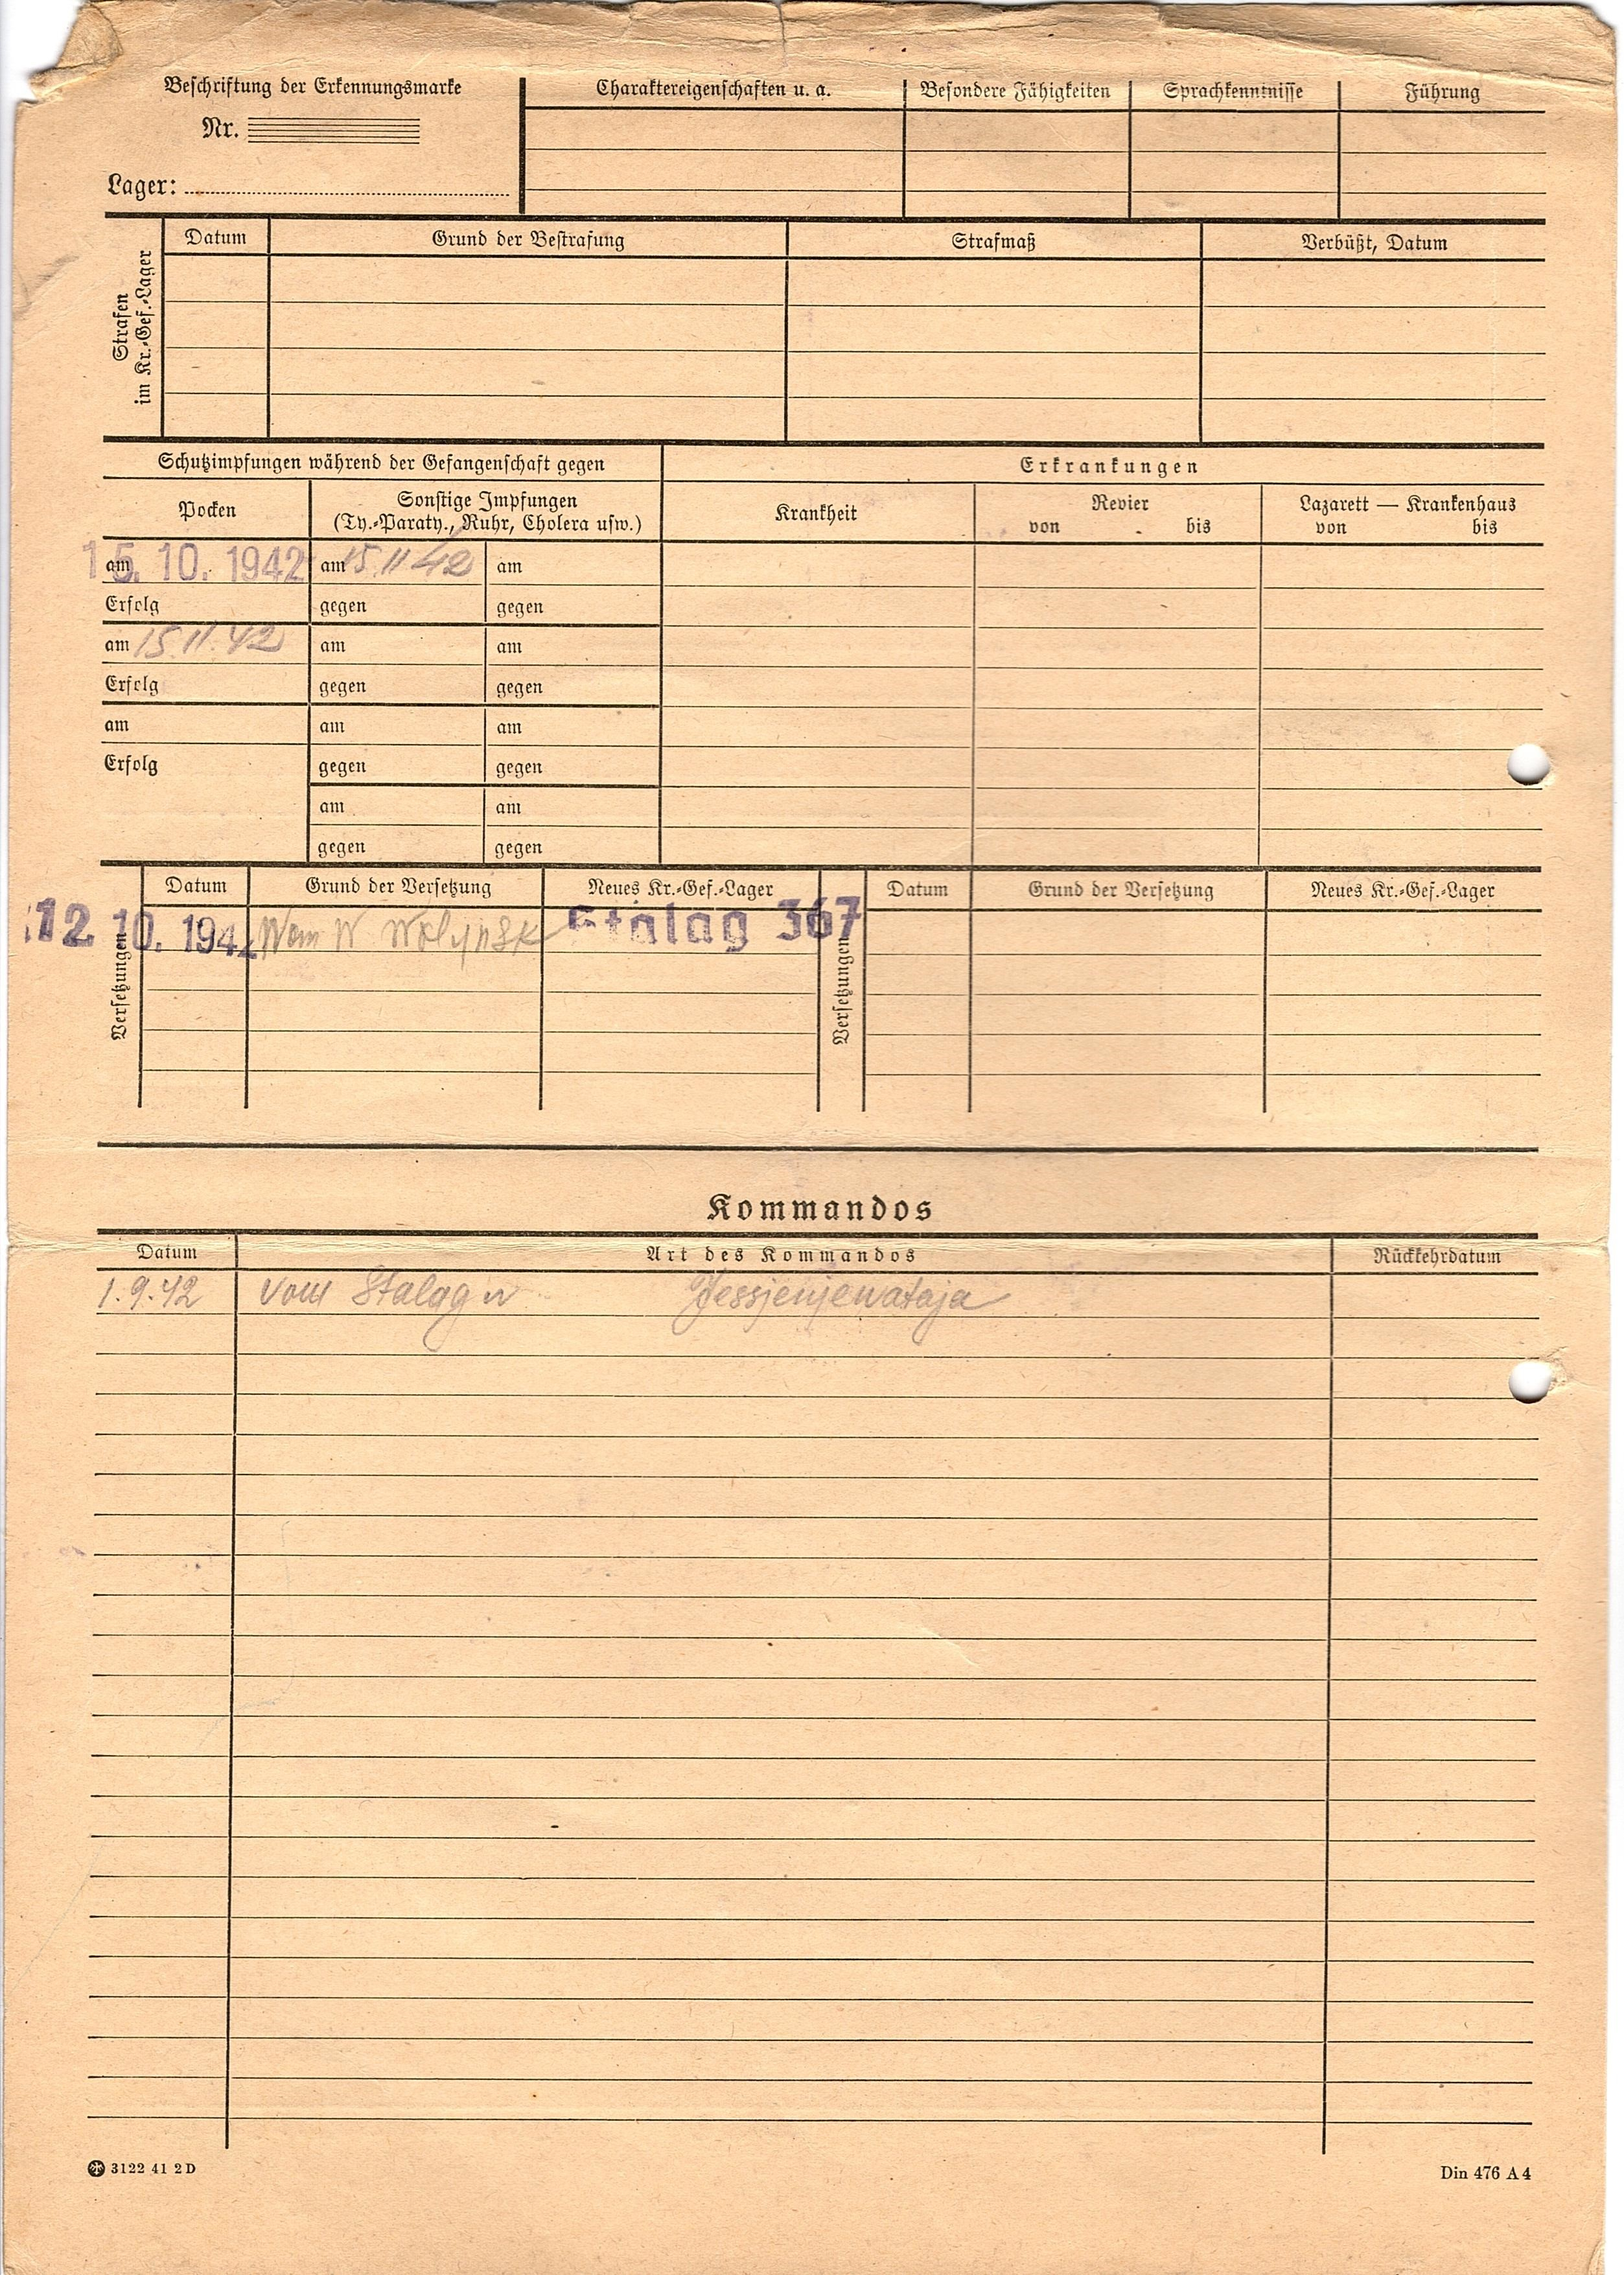 Beschriftung der Erkennungsmarke
Nr.
Lager:
Charaktereigenschaften u. a. Besondere Fähigkeiten Sprachkenntnisse Führung
Strafen
im Kr.-Gef.-Lager
Datum Grund der Bestrafung Strafmaß Verbüßt, Datum
Schutzimpfungen während der Gefangenschaft gegen
Erkrankungen
Pocken
Sonstige Impfungen
(Ty.-Paraty., Ruhr, Cholera usw.)
Krankheit
Revier
von bis
Lazarett — Krankenhaus
von bis
am 15. 10. 1942 am 15.11.42 am
Erfolg gegen gegen
am 15.11.42 am am
Erfolg gegen gegen
am am am
Erfolg gegen gegen
am am
gegen gegen
Versetzungen
Datum Grund der Versetzung Neues Kr.-Gef.-Lager
12. 10. 1942 W Wolynsk Stalag 367
Versetzungen
Datum Grund der Versetzung Neues Kr.-Gef.-Lager
Kommandos
Datum Art des Kommandos Rückkehrdatum
1.9.42 vom Stalag Jessjenjewataja
3122 41 2 D
Din 476 A 4